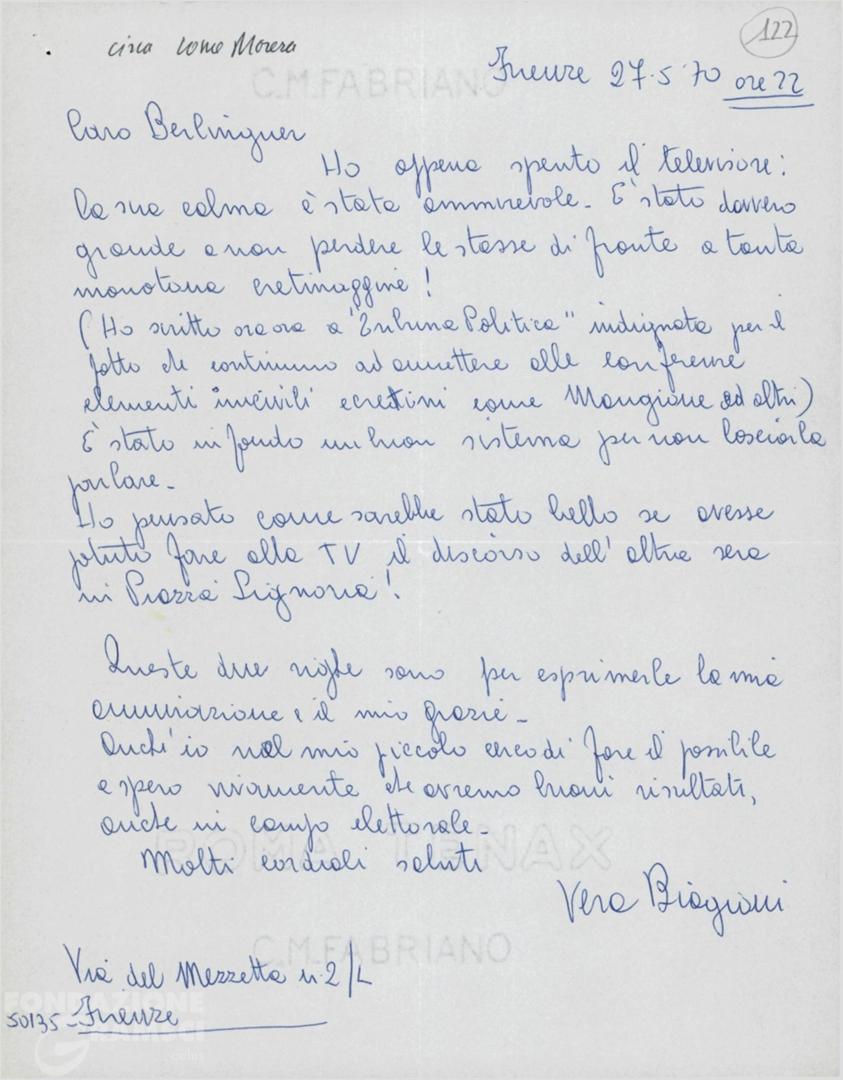 circa
122
C.M.FABRIANO
Firenze 27·5·70 ore 22
Caro Berlinguer
Ho appena spento il televisore:
la sua calma è stata ammirevole - E' stato davvero
grande a non perdere le staffe di fronte a tanta
monotona cretinaggine!
(Ho scritto ora ora a "Tribuna Politica" indignata per il
fatto che continuino ad ammettere alle conferenze
elementi incivili e cretini come Mangione ed altri)
È stato in fondo un buon sistema per non lasciarla
parlare -
Ho pensato come sarebbe stato bello se avesse
potuto fare alla TV il discorso dell'altra sera
in Piazza Signoria!
Queste due righe sono per esprimerle la mia
ammirazione e il mio grazie -
Anch'io nel mio piccolo cerco di fare il possibile
e spero vivamente che avremo buoni risultati,
anche in campo elettorale -
ROMA TENAX
Molti cordiali saluti
Vera Biagioni
C.M.FABRIANO
Via del Mezzetta n. 2/L
50135 - Firenze
FONDAZIONE
GRAMSCI